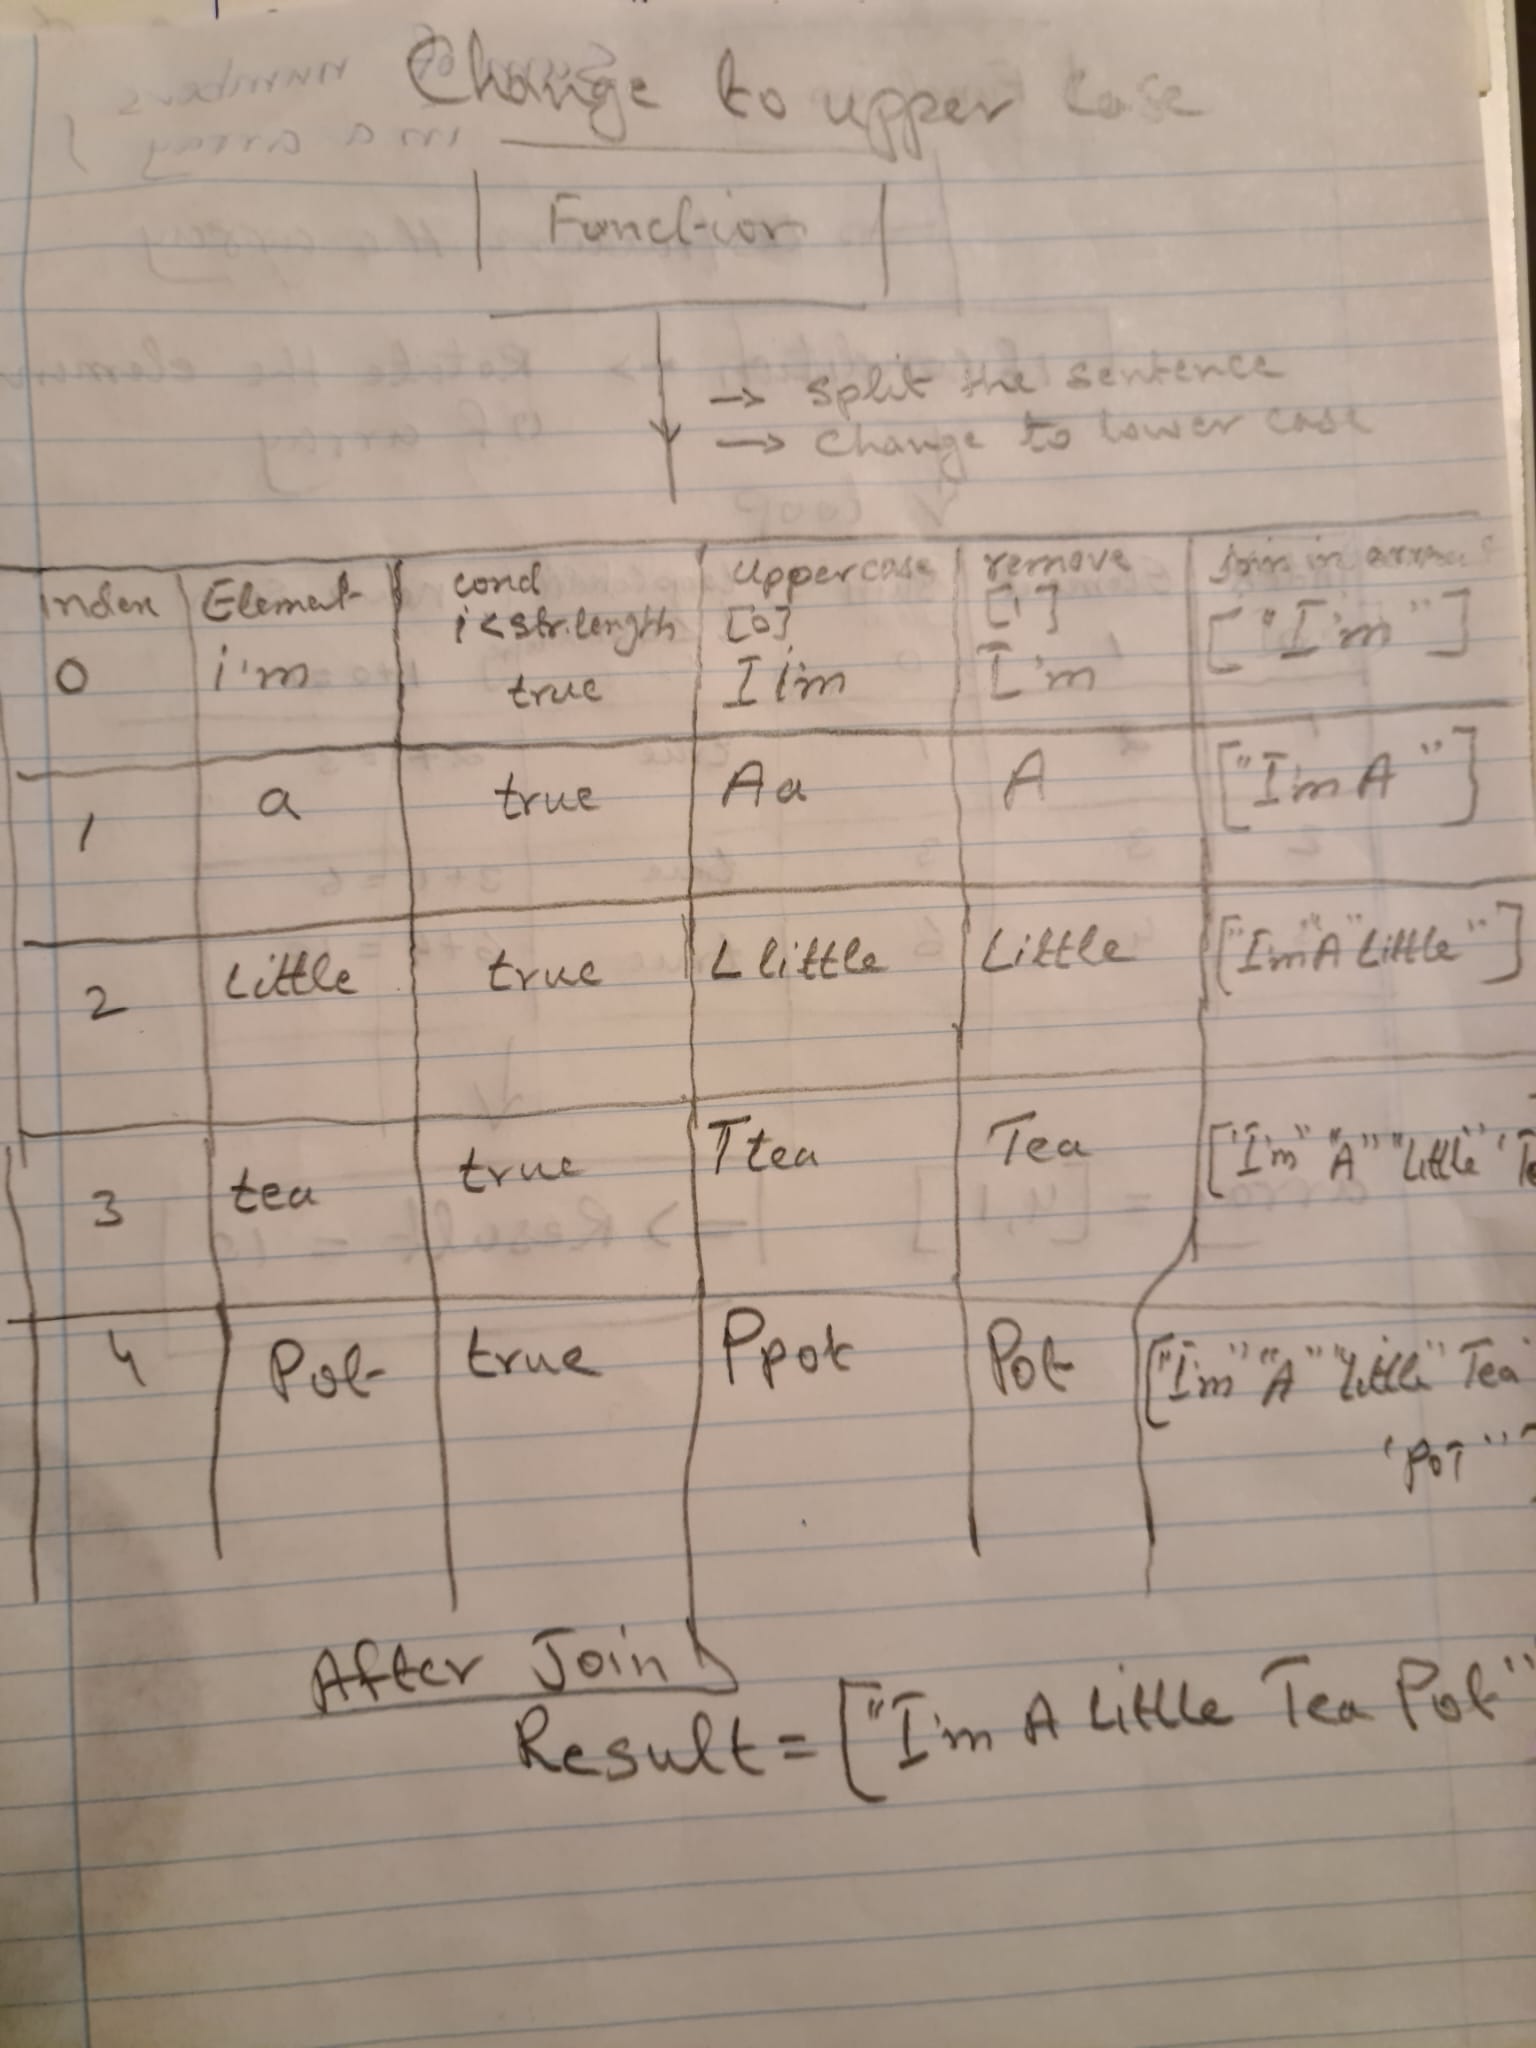 Change to upper case
Function
→ split the sentence
→ change to lower case
index Element cond i<str.length uppercase [0] remove [1] join in
0 i'm true I i'm I'm ["I'm"]
1 a true Aa A ["I'm A"]
2 little true L little Little ["I'm" A" Little"]
3 tea true Ttea Tea ["I'm" "A" "Little" "Te
4 Pot true Ppot Pot ["I'm" "A" "Little" Tea
"POT"]
After Join
Result = ["I'm A Little Tea Pot"